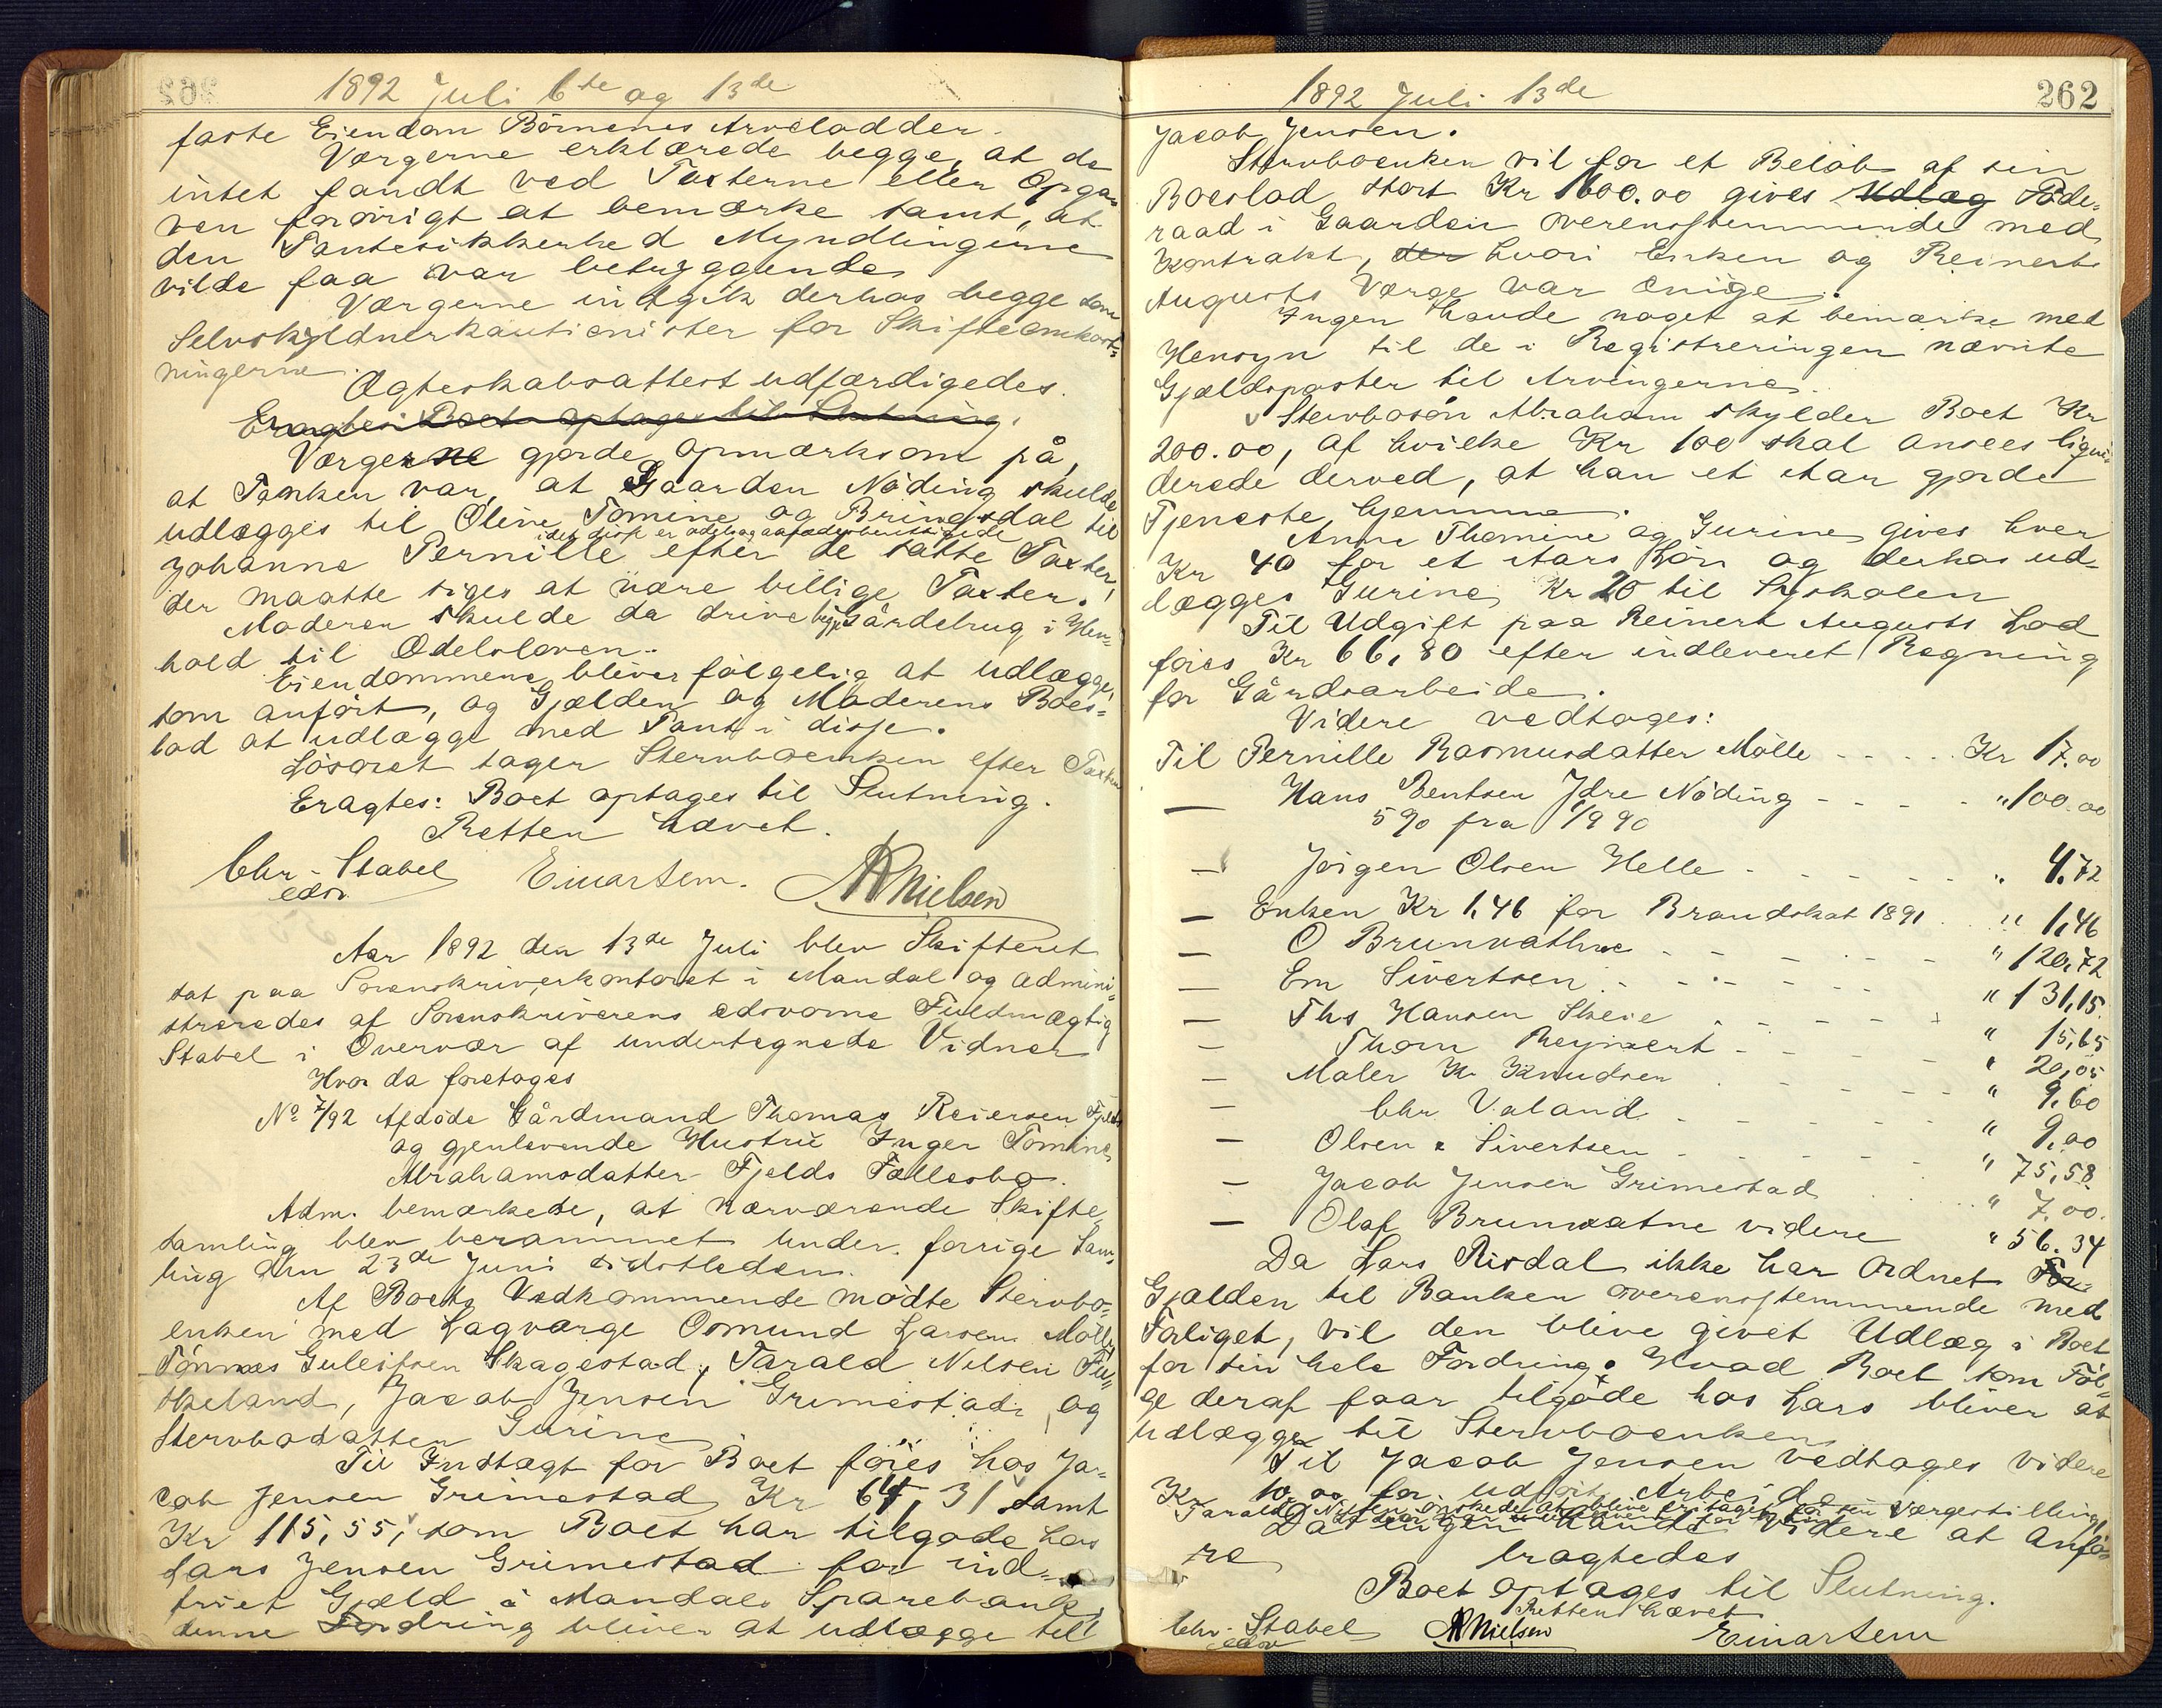 1892 Juli 6te og 13de
faste Eiendom Börnenes Arvelodder.
Værgerne erklærede begge, at de
intet fandt ved Taxterne eller Opga-
ven forövrigt at bemærke samt, at
den Pantesikkerhed Myndlingerne
vilde faa var betryggende
Værgerne indgik derhos begge som
Selvskyldnerkautionister for Skifteomkost-
ningerne.
Ægteskabsattest udfærdigedes.
Eragtes: Boet optages til Slutning.
Værgerne gjorde opmærksom på,
at Tanken var, at Gaarden Nöding skulde
udlægges til Oline Tomine og Bringsdal til
i det disse er odels og aasædesberettigede
Johanne Pernille efter de satte Taxter,
der maatte siges at være billige Taxter.
Moderen skulde da drive begge Gårdebrug i Hen-
hold til Odelsloven.
Eiendommene bliver fölgelig at udlægge,
som anfört, og Gjælden og Moderens Boes-
lod at udlægge med Pant i disse.
Lösöret tager Stervboenken efter Taxten
Eragtes: Boet optages til Slutning.
Retten hævet.
Chr. Stabel Einar Sem. AR Nielsen
edsv.
Aar 1892 den 13de Juli blev Skifteret
sat paa Sorenskriverkontoret i Mandal og admini-
streredes af Sorenskriverens edsvorne Fuldmægtig
Stabel i Overvær af undertegnede Vidner
Hvor da foretages
No 7/92 Afdöde Gårdmand Thomas Reiersen Fjelds
og gjenlevende Hustru Inger Tomine
Abrahamsdatter Fjelds Fællesbo.
Adm. bemærkede, at nærværende Skifte-
samling blev berammet under forrige Sam-
ling den 23de Juni sidstleden.
Af Boets Vedkommende mödte Stervbo-
enken med Lagværge Osmund Larsen Mölle,
Tönnes Guleifsen Skagestad, Tarald Nilsen Fu-
skeland, Jacob Jensen Grimestad, og
Stervbodatter Gurine
Til Indtægt for Boet föres hos Ja-
cob Jensen Grimestad Kr 64,31 samt
Kr 115,55, som Boet har tilgode hos
Lars Jensen Grimestad for ind-
friet Gjæld i Mandals Sparebank,
denne Fordring bliver at udlægge til
1892 Juli 13de
262
Jacob Jensen.
Stervboenken vil for et Belöb af sin
Boeslod stort Kr 1600.00 gives Udlæg Föde-
raad i Gaarden overensstemmende med
Kontrakt, der hvori Enken og Reinert
Augusts Værge var enige.
Ingen havde noget at bemærke med
Hensyn til de i Registreringen nævnte
Gjældsposter til Arvingerne.
Stervbosön Abraham skylder Boet Kr
200.00, af hvilke Kr 100 skal ansees liqui-
derede derved, at han et Aar gjorde
Tjeneste hjemme.
Anne Thomine og Gurine gives hver
Kr 40 for et Aars Lön og derhos ud-
lægges Gurine Kr 20 til Syskolen
Til Udgift paa Reinert Augusts Lod
föres Kr 66,80 efter indleveret Regning
for Gårdsarbeide.
Videre vedtoges:
Til Pernille Rasmusdatter Mölle - - - - Kr 17.00
— Hans Bentsen Ydre Nöding - - - - " 100.00
5 % fra 1/9 90
— Jörgen Olsen Helle - - - - - " 4.72
— Enken Kr 1,46 for Brandskat 1891 . . " 1,46
— O Brunvathne - - - - - " 120,72
— Em Sivertsen - - - - - " 131,15
— Ths Hansen Skeie - - - - - " 15,65
— Thom Reinert - - - - " 20,05
— Maler K. Knudsen - - - - " 9.60
— Chr Valand - - - - - " 9,00
— Olsen & Sivertsen - - - - - " 75,58
— Jacob Jensen Grimestad . . . " 7.00.
— Olaf Brunvatne videre " 56.34
Da Lars Risdal ikke har ordnet For-
Gjælden til Banken overensstemmende med
Forliget, vil den blive givet Udlæg i Boet
for sin hele Fordring. Hvad Boet som Föl-
ge deraf faar tilgode hos Lars bliver at
udlægge til Stervboenken
Til Jacob Jensen vedtoges videre
Kr 10,00 for udfört Arbeide
Tarald Nilsen önskede at blive fritaget for sin Værgestilling
Da ingen havde videre at anfö-
re eragtedes
Boet optages til Slutning.
Retten hævet
Chr. Stabel AR Nielsen Einar Sem
edsv